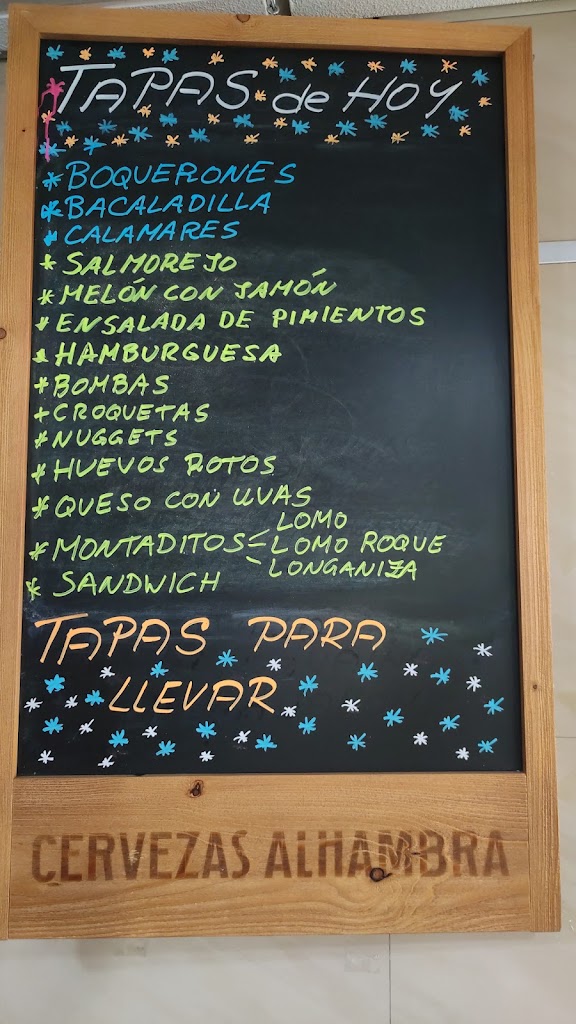 TAPAS de HOY
* BOQUERONES
* BACALADILLA
* CALAMARES
* SALMOREJO
* MELÓN CON JAMÓN
* ENSALADA DE PIMIENTOS
* HAMBURGUESA
* BOMBAS
* CROQUETAS
* NUGGETS
* HUEVOS ROTOS
* QUESO CON UVAS
LOMO
* MONTADITOS LOMO ROQUE
LONGANIZA
* SANDWICH
TAPAS PARA
LLEVAR
CERVEZAS ALHAMBRA